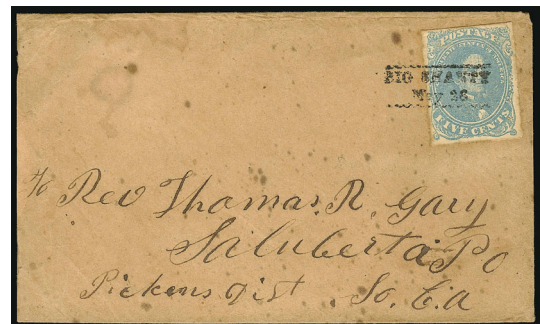 POSTAGE
BIG SHANTY
May 26
FIVE CENTS
To Rev Thomas. R. Gary
Saluberta Po
Pickens Dist So. C.a